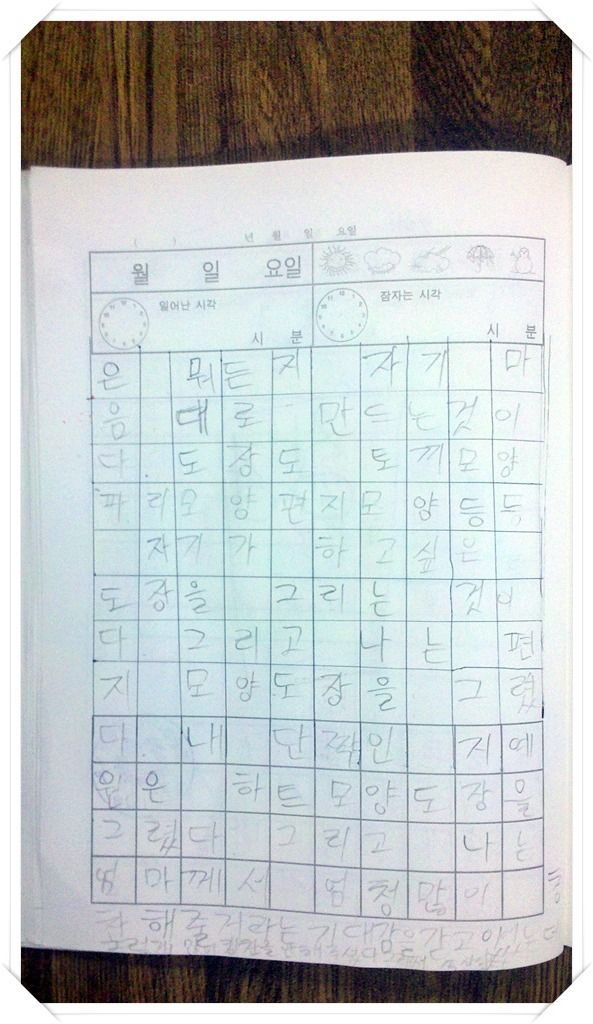 ( ) 년 월 일 요일
월 일 요일
일어난 시각 시 분 잠자는 시각 시 분
은 뭐든지 자기 마
음대로 만드는것이
다. 도장도 토끼모양
파리모양편지모양등등
자기가 하고싶은
도장을 그리는 것이
다 그리고 나는 편
지 모양도장을 그렸
다 내 단짝인 지예
원은 하트모양도장을
그렸다 그리고 나는
엄마께서 엄청많이 칭
찬해줄거라는 기대감을간고있었는데
그렇게